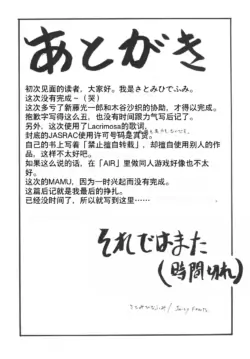 あとがき
初次见面的读者，大家好。我是さとみひでふみ。
这次没有完成～（哭）
这次多亏了新藤光一郎和木谷沙织的协助，才得以完成。
抱歉字写得这么丑，也没有时间跟力气写后记了。
另外，这次使用了Lacrimosa的歌词，
封底的JASRAC使用许可号码是真货。
自己的书上写着「禁止擅自转载」，却擅自使用别人的作
品，这样不太好吧。
如果这么说的话，在「AIR」里做同人游戏好像也不太
好。
这次的MAMU，因为一时兴起而没有完成。
这篇后记就是我最后的挣扎。
已经没时间了，所以就写到这里……
それではまた
（時間切れ）